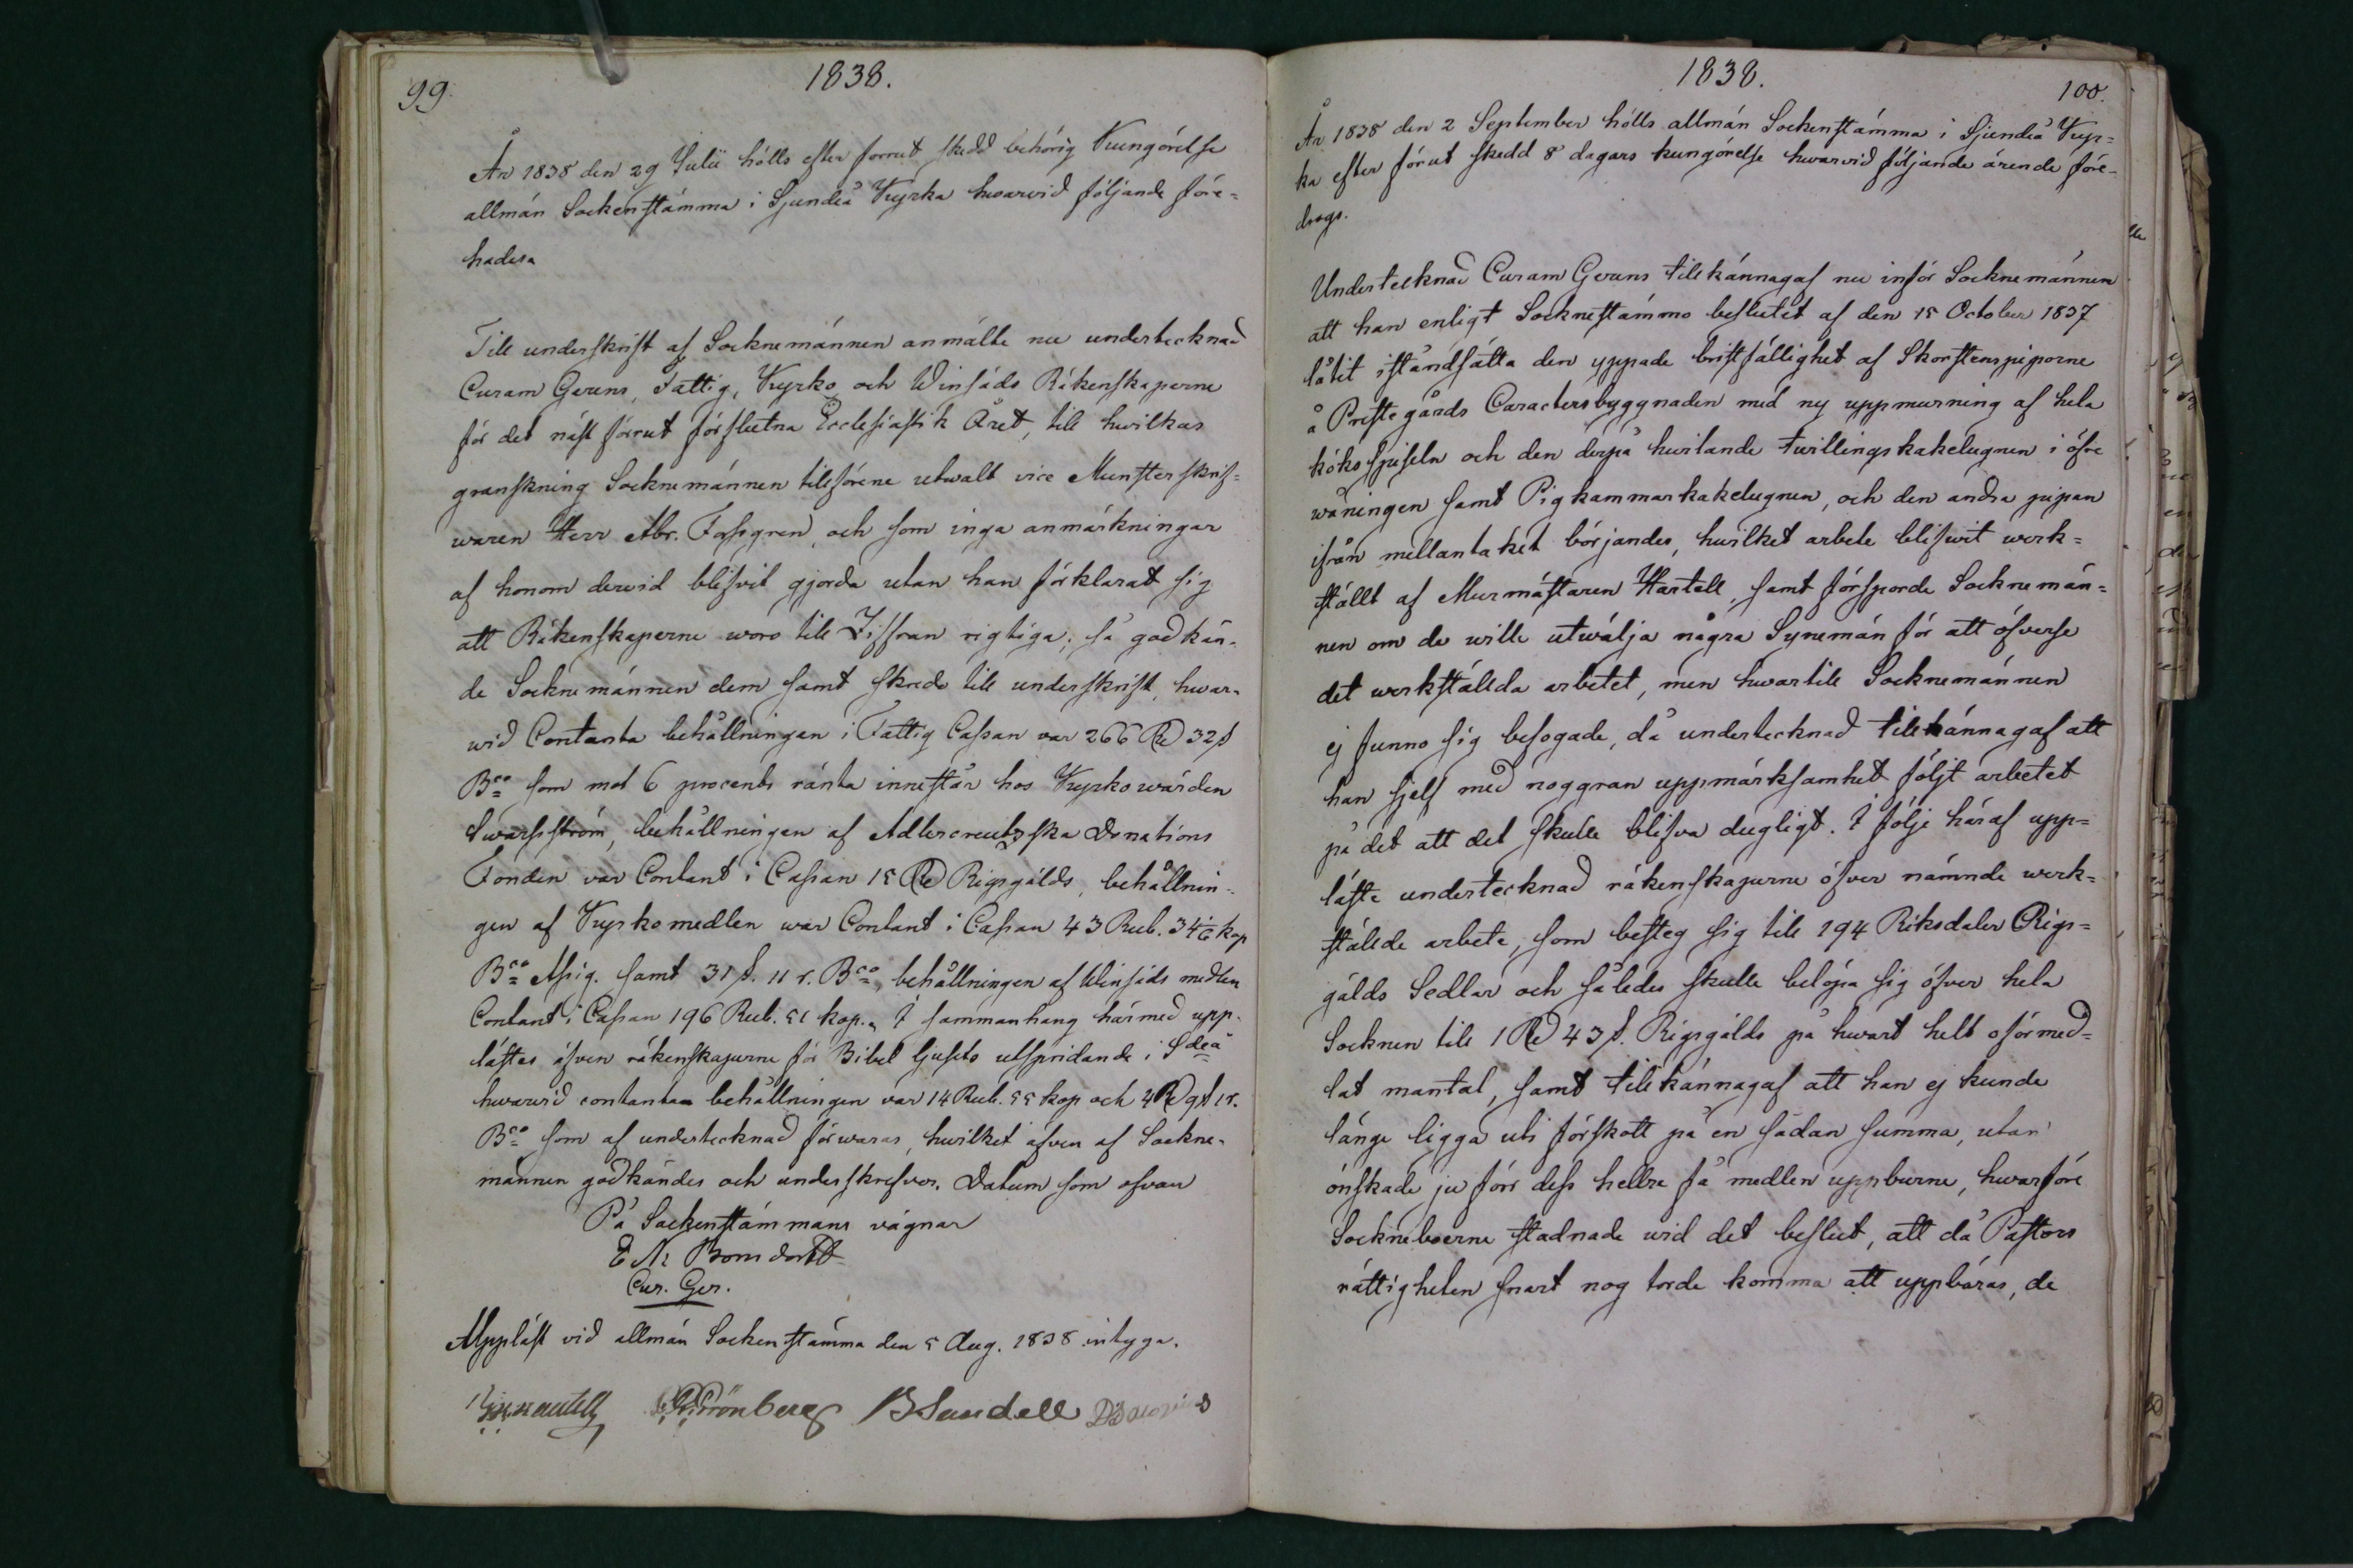 99.
1838.
År 1838 den 29 Julii hölls efter förrut skedd behörig Kungörelse
allmän Sockenstämma i Sjundeå Kyrka hwarwid följande före=
hades.
Till underskrift af Socknemännen anmälte nu undertecknad
Curam Gerens, Fattig, Kyrko och Winsäds Räkenskaperne
för det näst förrut förflutna Ecclesiastik Året, till hwilkas
granskning Socknemännen tillförene utwalt vice Munsterskrif=
waren Herr Abr. Forsgren, och som inga anmärkningar
af honom derwid blifvit gjorda utan han förklarat sig
att Räkenskaperne woro till Ziffran rigtiga; så godkän=
de Socknemännen dem samt skredo till underskrift, hwar=
wid Contanta behållningen i Fattig Cassan var 266 Rd 32 s
Bco som mot 6 procents ränta innestår hos Kyrkowärden
Swartström, behållningen af Adlercreutzska Donations
Fonden var Contant i Cassan 15 Rd Rigsgälds, behållnin=
gen af Kyrkomedlen war Contant i Cassan 43 Rub. 34 1/6 kop
Bco Assig. samt 31 s. 11 r. Bco, behållningen af Winsäds medlen
Contant i Cassan 196 Rub. 51 kop. I sammanhang härmed upp=
lästes äfven räkenskaperne för Bibel ljusets utspridande i Sdeå
hwarwid contanta behållningen var 14 Rub. 55 kop och 4 Rd 9 s 1 r.
Bco som af undertecknad förwaras, hwilket äfven af Sockne=
männen godkändes och underskrefvos. Datum som ofvan
På Sockenstämmans vägnar
E N Bonsdorff
Cur. Ger.
Uppläst vid allmän Sockenstämma den 5 Aug. 1838 intyga.
Grönberg B Sundell
1838.
100.
År 1838 den 2 September hölls allmän Sockenstämma i Sjundeå Kyr=
ka efter förut skedd 8 dagars kungörelse hwarvid följande ärende före=
drogs.
Undertecknad Curam Gerens tillkännagaf nu inför Socknemännen
att han enligt Socknestämmo beslutet af den 15 October 1837
låtit iståndsätta den yppade bristfällighet af Skorstenspiporne
å Prestegårds Caractersbyggnaden med ny uppmurning af hela
köksspiseln och den derpå hwilande twillingskakelugnen i öfre
wåningen samt Pigkammarkakelugnen, och den andra pipan
ifrån mellantaket börjandes, hwilket arbete blifwit werk=
ställt af Murmästaren Hartell, samt försporde Socknemän=
nen om de wille utwälja några Synemän för att öfverse
det werkställda arbetet, men hwartill Socknemännen
ej funno sig befogade, då undertecknad tillkännagaf att
han sjelf med noggran uppmärksamhet följt arbetet
på det att det skulle blifva dugligt. I följe häraf upp=
läste undertecknad räkenskaperne öfver nämnde werk=
ställde arbete, som besteg sig till 194 Riksdaler Rigs=
gälds Sedlar och således skulle belöpa sig öfver hela
Socknen till 1 Rd 43 s. Rigsgälds på hwart helt oförmed=
lat mantal, samt tillkännagaf att han ej kunde
länge ligga uti förskott på en sådan summa, utan
önskade ju förr dess hellre få medlen uppburne, hwarföre
Sockneboerne stadnade wid det beslut, att då Pastors
rättigheten snart nog torde komma att uppbäras, de